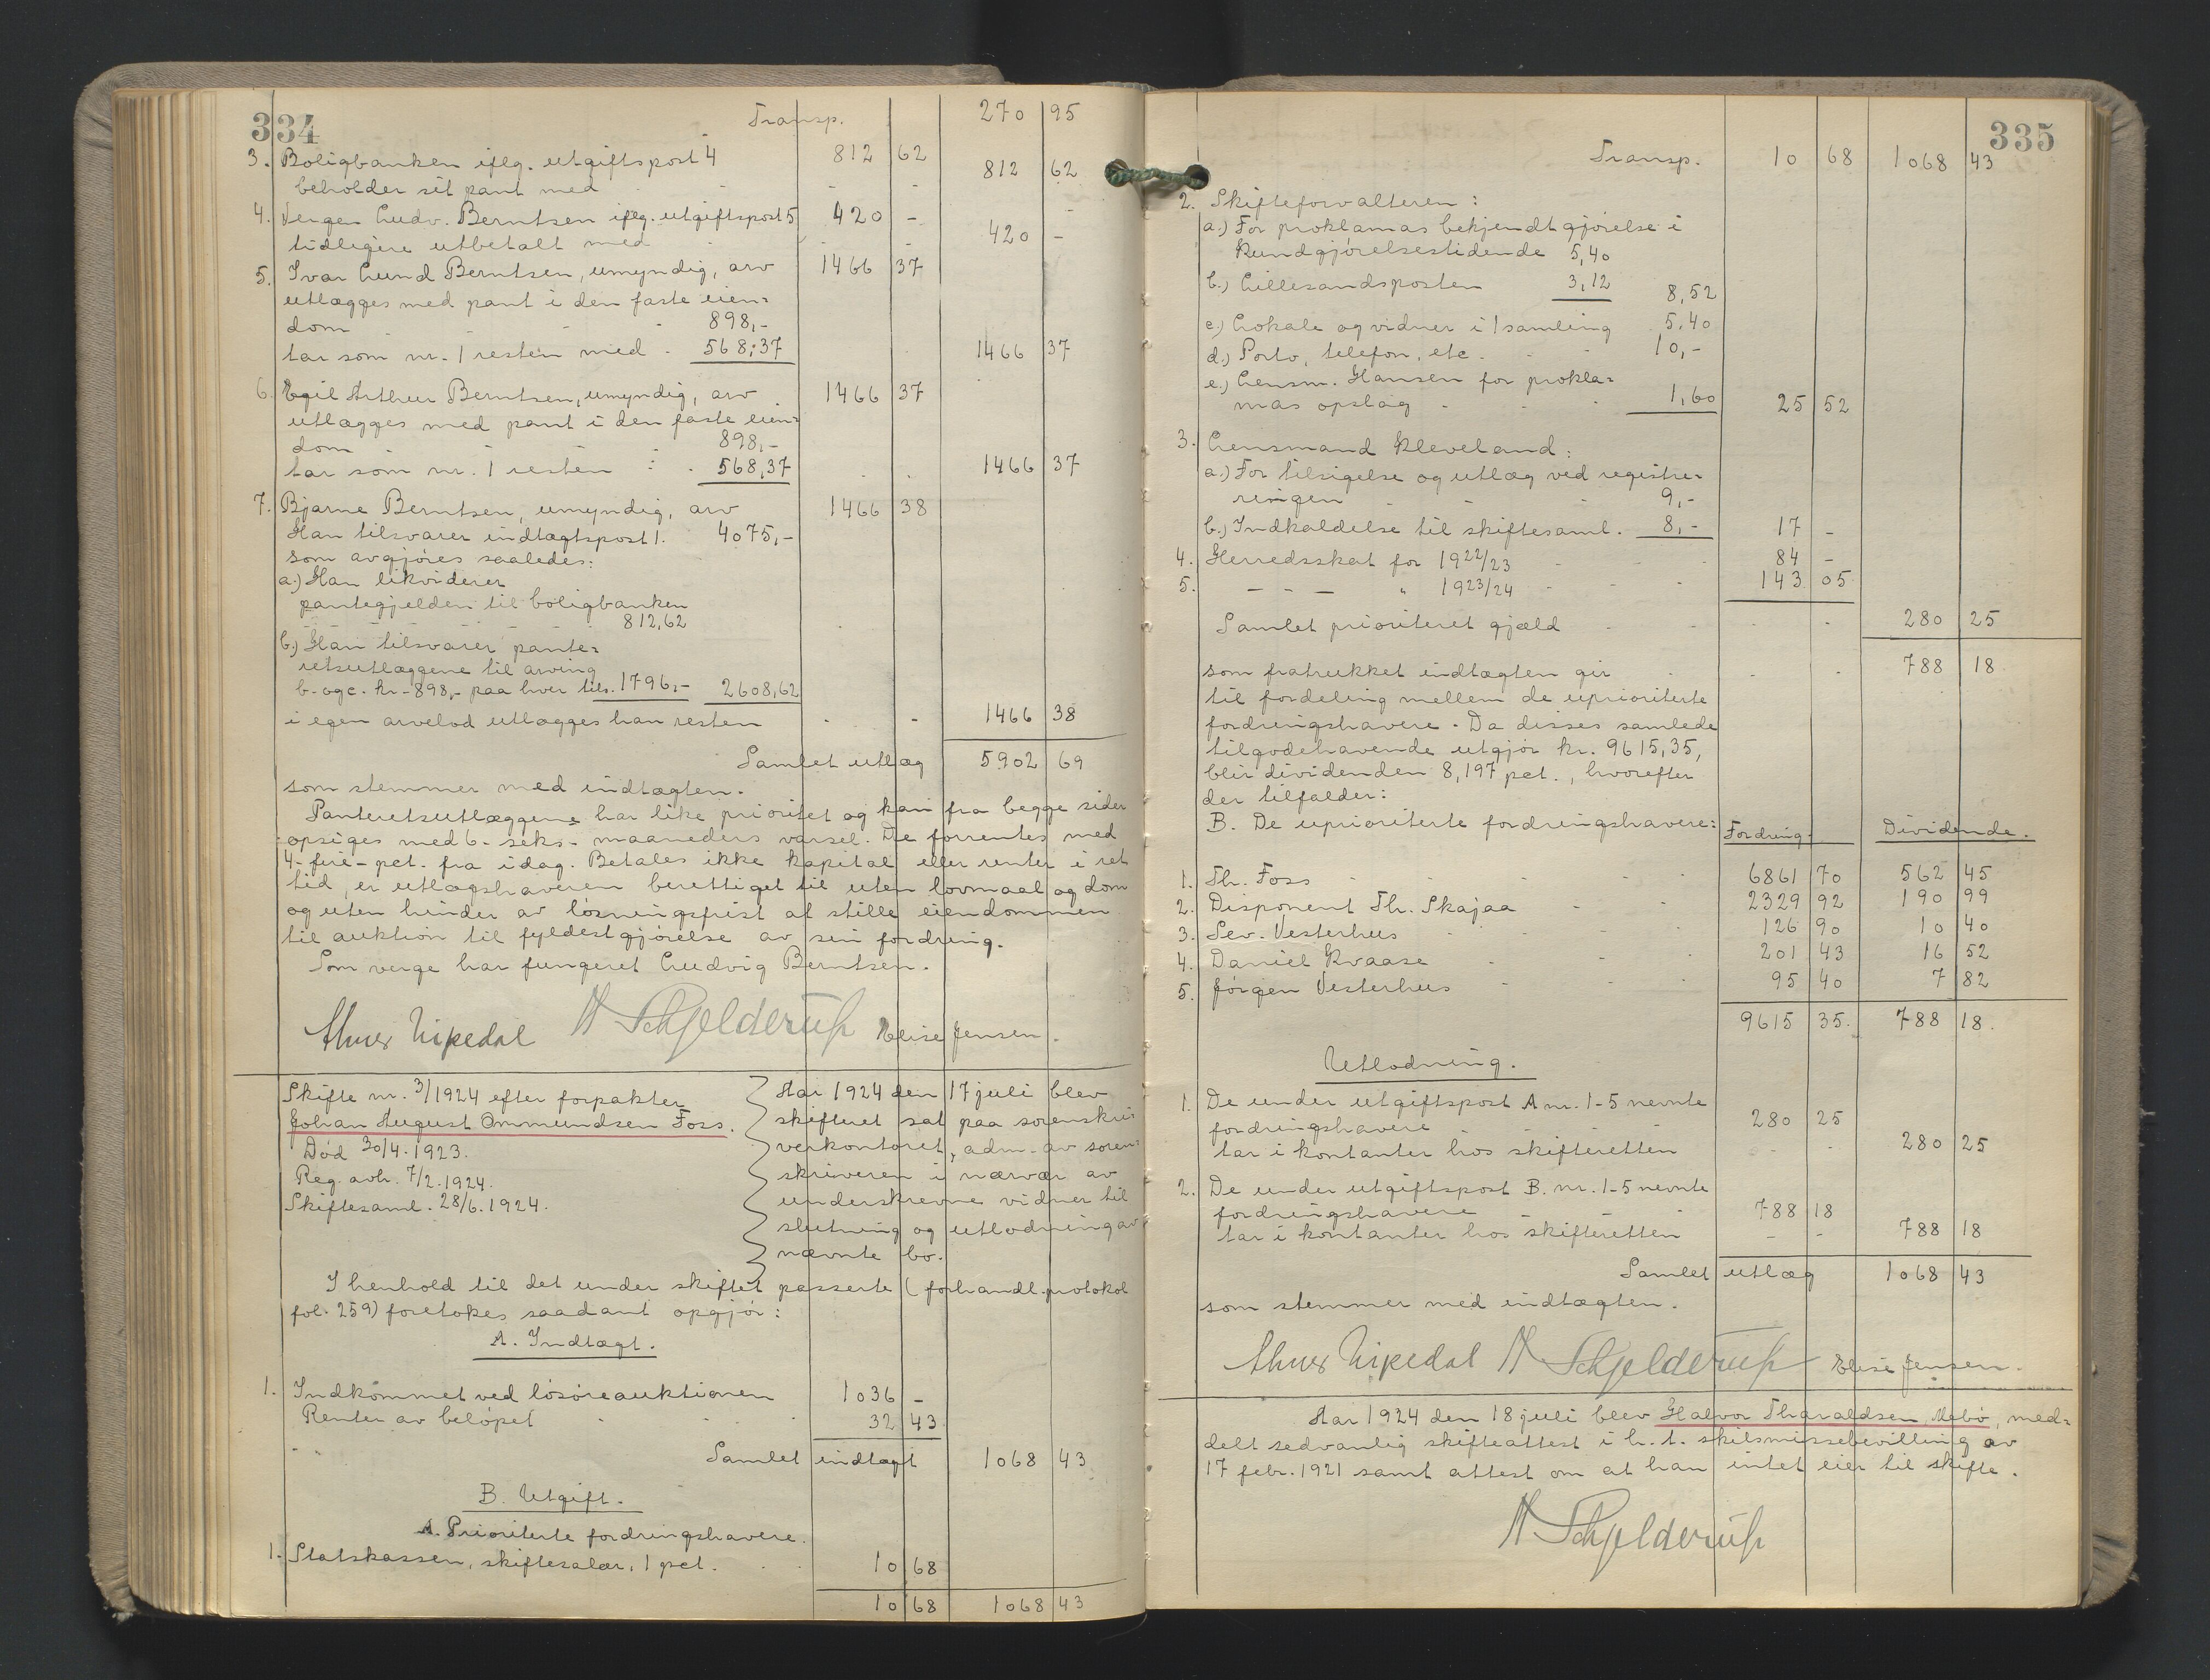 334
Transp. 270 95
3. Boligbanken iflg. utgiftspost 4 812 62
beholder sit pant med - - 812 62
4. Verge Ludv. Berntsen iflg. utgiftspost 5 420 -
tidligere utbetalt med 420 -
5. Ivar Lund Berntsen, umyndig, arv 1466 37
utlægges med pant i den faste eien=
dom 898,-
tar som nr. 1 resten med 568,37 1466 37
6. Egil Arthur Berntsen, umyndig, arv 1466 37
utlægges med pant i den faste eien=
dom 898,-
tar som nr. 1 resten 568,37 1466 37
7. Bjarne Berntsen, umyndig, arv 1466 38
Han tilsvarer indtægtspost 1. 4075,-
som avgjøres saaledes:
a.) Han likviderer
pantegjelden til boligbanken
812,62
b.) Han tilsvarer pante=
retsutlæggene til arving
b. og c. kr. 898,- paa hver tils. 1796,- 2608,62
i egen arvelod utlægges han resten - - 1466 38
Samlet utlæg 5902 69
som stemmer med indtægten.
Panteretsutlæggene har like prioritet og kan fra begge sider
opsiges med 6 - seks - maaneders varsel. De forrentes med
4 - fire - pct. fra idag. Betales ikke kapital eller renter i ret
tid, er utlægshaveren berettiget til uten lovmaal og dom
og uten hinder av løsningsfrist at stille eiendommen
til auktion til fyldestgjørelse av sin fordring.
Som verge har fungeret Ludvig Berntsen.
N Schjelderup Elise Jensen.
Skifte nr. 3/1924 efter forpakter
Johan August Ommundsen Foss.
Død 30/4. 1923.
Reg. avh. 7/2. 1924.
Skiftesaml. 28/6. 1924.
Aar 1924 den 17 juli blev
skifteret sat paa sorenskri
verkontoret, adm. av soren=
skriveren i nærvær av
underskrevne vidner til
slutning og utlodning av
nævnte bo.
I henhold til det under skiftet passerte (forhandl.protokol
fol. 259) foretokes saadant opgjør:
A. Indtægt.
1. Indkommet ved løsøreauktionen 1036 -
Renter av beløpet 32 43
Samlet indtægt 1068 43
B. Utgift.
A. Prioriterte fordringshavere.
1. Statskassen, skiftesalær, 1 pct. 10 68
10 68 1068 43
335
Transp. 10 68 1068 43
2. Skifteforvalteren:
a.) For proklamas bekjendtgjørelse i
Kundgjørelsestidende 5,40
b.) Lillesandsposten 3,12 8,52
c.) Lokale og vidner i 1 samling 5.40
d.) Porto, telefon, etc. 10,-
e.) Lensm. Hansen for prokla=
mas opslag 1,60 25 52
3. Lensmand Kleveland:
a.) For tilsigelse og utlæg ved registre=
ringen 9,-
b.) Indkaldelse til skiftesaml. 8,- 17 -
4. Herredsskat for 1922/23 84 -
5. - - - " 1923/24 143 05
Samlet prioritert gjæld 280 25
som fratrukket indtægten gir 788 18
til fordeling mellem de uprioriterte
fordringshavere. Da disses samlede
tilgodehavende utgjør kr. 9615,35,
blir dividenden 8,197 pct., hvorefter
der tilfalder:
B. De uprioriterte fordringshavere: Fordring. Dividende.
1. Th. Foss 6861 70 562 45
2. Disponent Th. Skajaa 2329 92 190 99
3. Sev. Vesterhus 126 90 10 40
4. Daniel Kvaase 201 43 16 52
5. Jørgen Vesterhus 95 40 7 82
9615 35. 788 18.
Utlodning.
1. De under utgiftspost A nr. 1-5 nevnte
fordringshavere 280 25
tar i kontanter hos skifteretten 280 25
2. De under utgiftspost B. nr. 1-5 nevnte
fordringshavere 788 18
tar i kontanter hos skifteretten - - 788 18
Samlet utlæg 1068 43
som stemmer med indtægten.
N Schjelderup Elise Jensen.
Aar 1924 den 18 juli blev Halvor Tharaldsen, Mebø, med=
delt sedvanlig skifteattest i h. t. skilsmissebevilling av
17 febr. 1921 samt attest om at han intet eier til skifte.
N Schjelderup